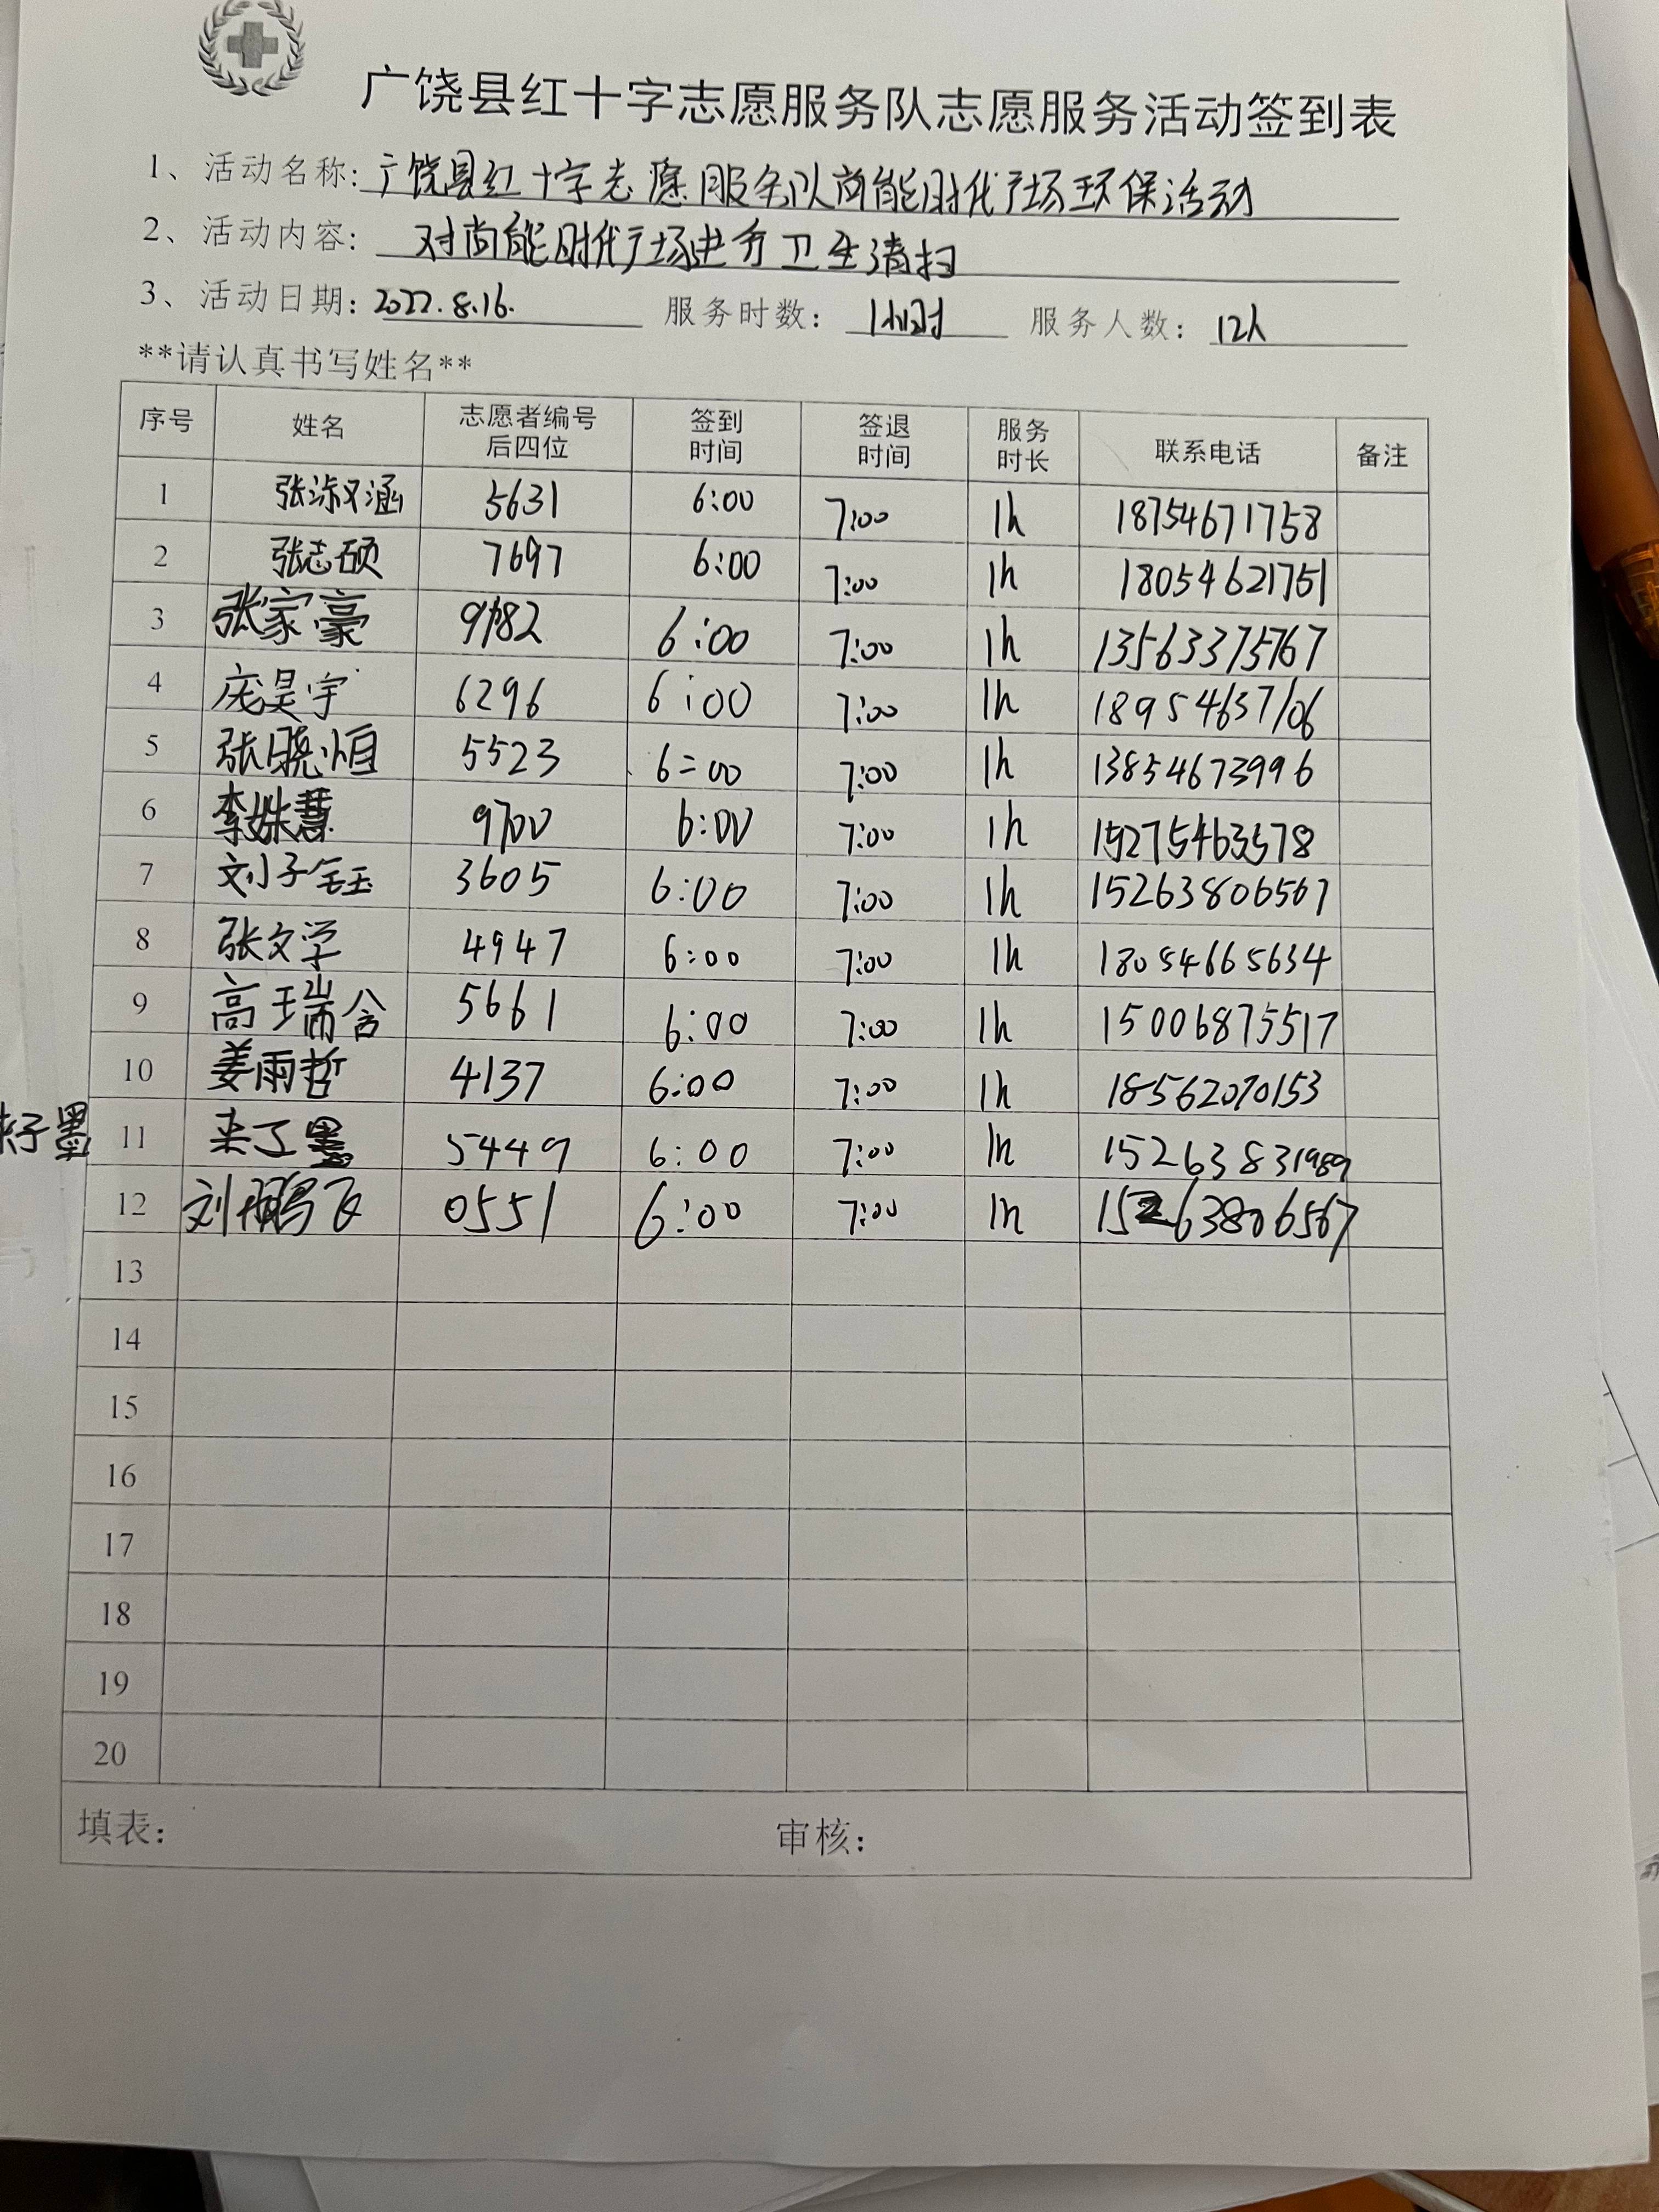 广饶县红十字志愿服务队志愿服务活动签到表
1、活动名称: 广饶县红十字志愿服务队尚能时代广场环保活动
2、活动内容: 对尚能时代广场进行卫生清扫
3、活动日期: 2022.8.16. 服务时数: 1小时 服务人数: 12人
**请认真书写姓名**
序号 姓名 志愿者编号后四位 签到时间 签退时间 服务时长 联系电话 备注
1 张淑涵 5631 6:00 7:00 1h 18754671758
2 张志硕 7697 6:00 7:00 1h 18054621751
3 张家豪 9182 6:00 7:00 1h 13563375767
4 庞昊宇 6296 6:00 7:00 1h 18954637106
5 张晓恒 5523 6:00 7:00 1h 13854673996
6 李姝慧 9700 6:00 7:00 1h 15275463578
7 刘子钰 3605 6:00 7:00 1h 15263806567
8 张文学 4947 6:00 7:00 1h 18054665634
9 高瑞含 5661 6:00 7:00 1h 15006875517
10 姜雨哲 4137 6:00 7:00 1h 18562070153
子墨 11 5449 6:00 7:00 1h 15263831989
12 刘鹏飞 0551 6:00 7:00 1h 15263806567
13
14
15
16
17
18
19
20
填表: 审核: